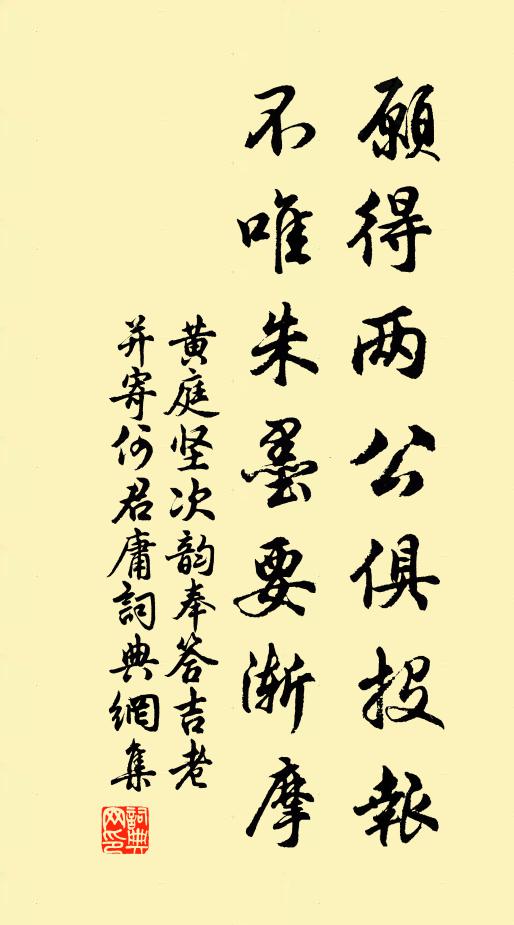 願得两公俱投報
不唯朱墨要漸摩
黄庭坚次韵奉答吉老
并寄何君庸詞典網集
詞典
网印